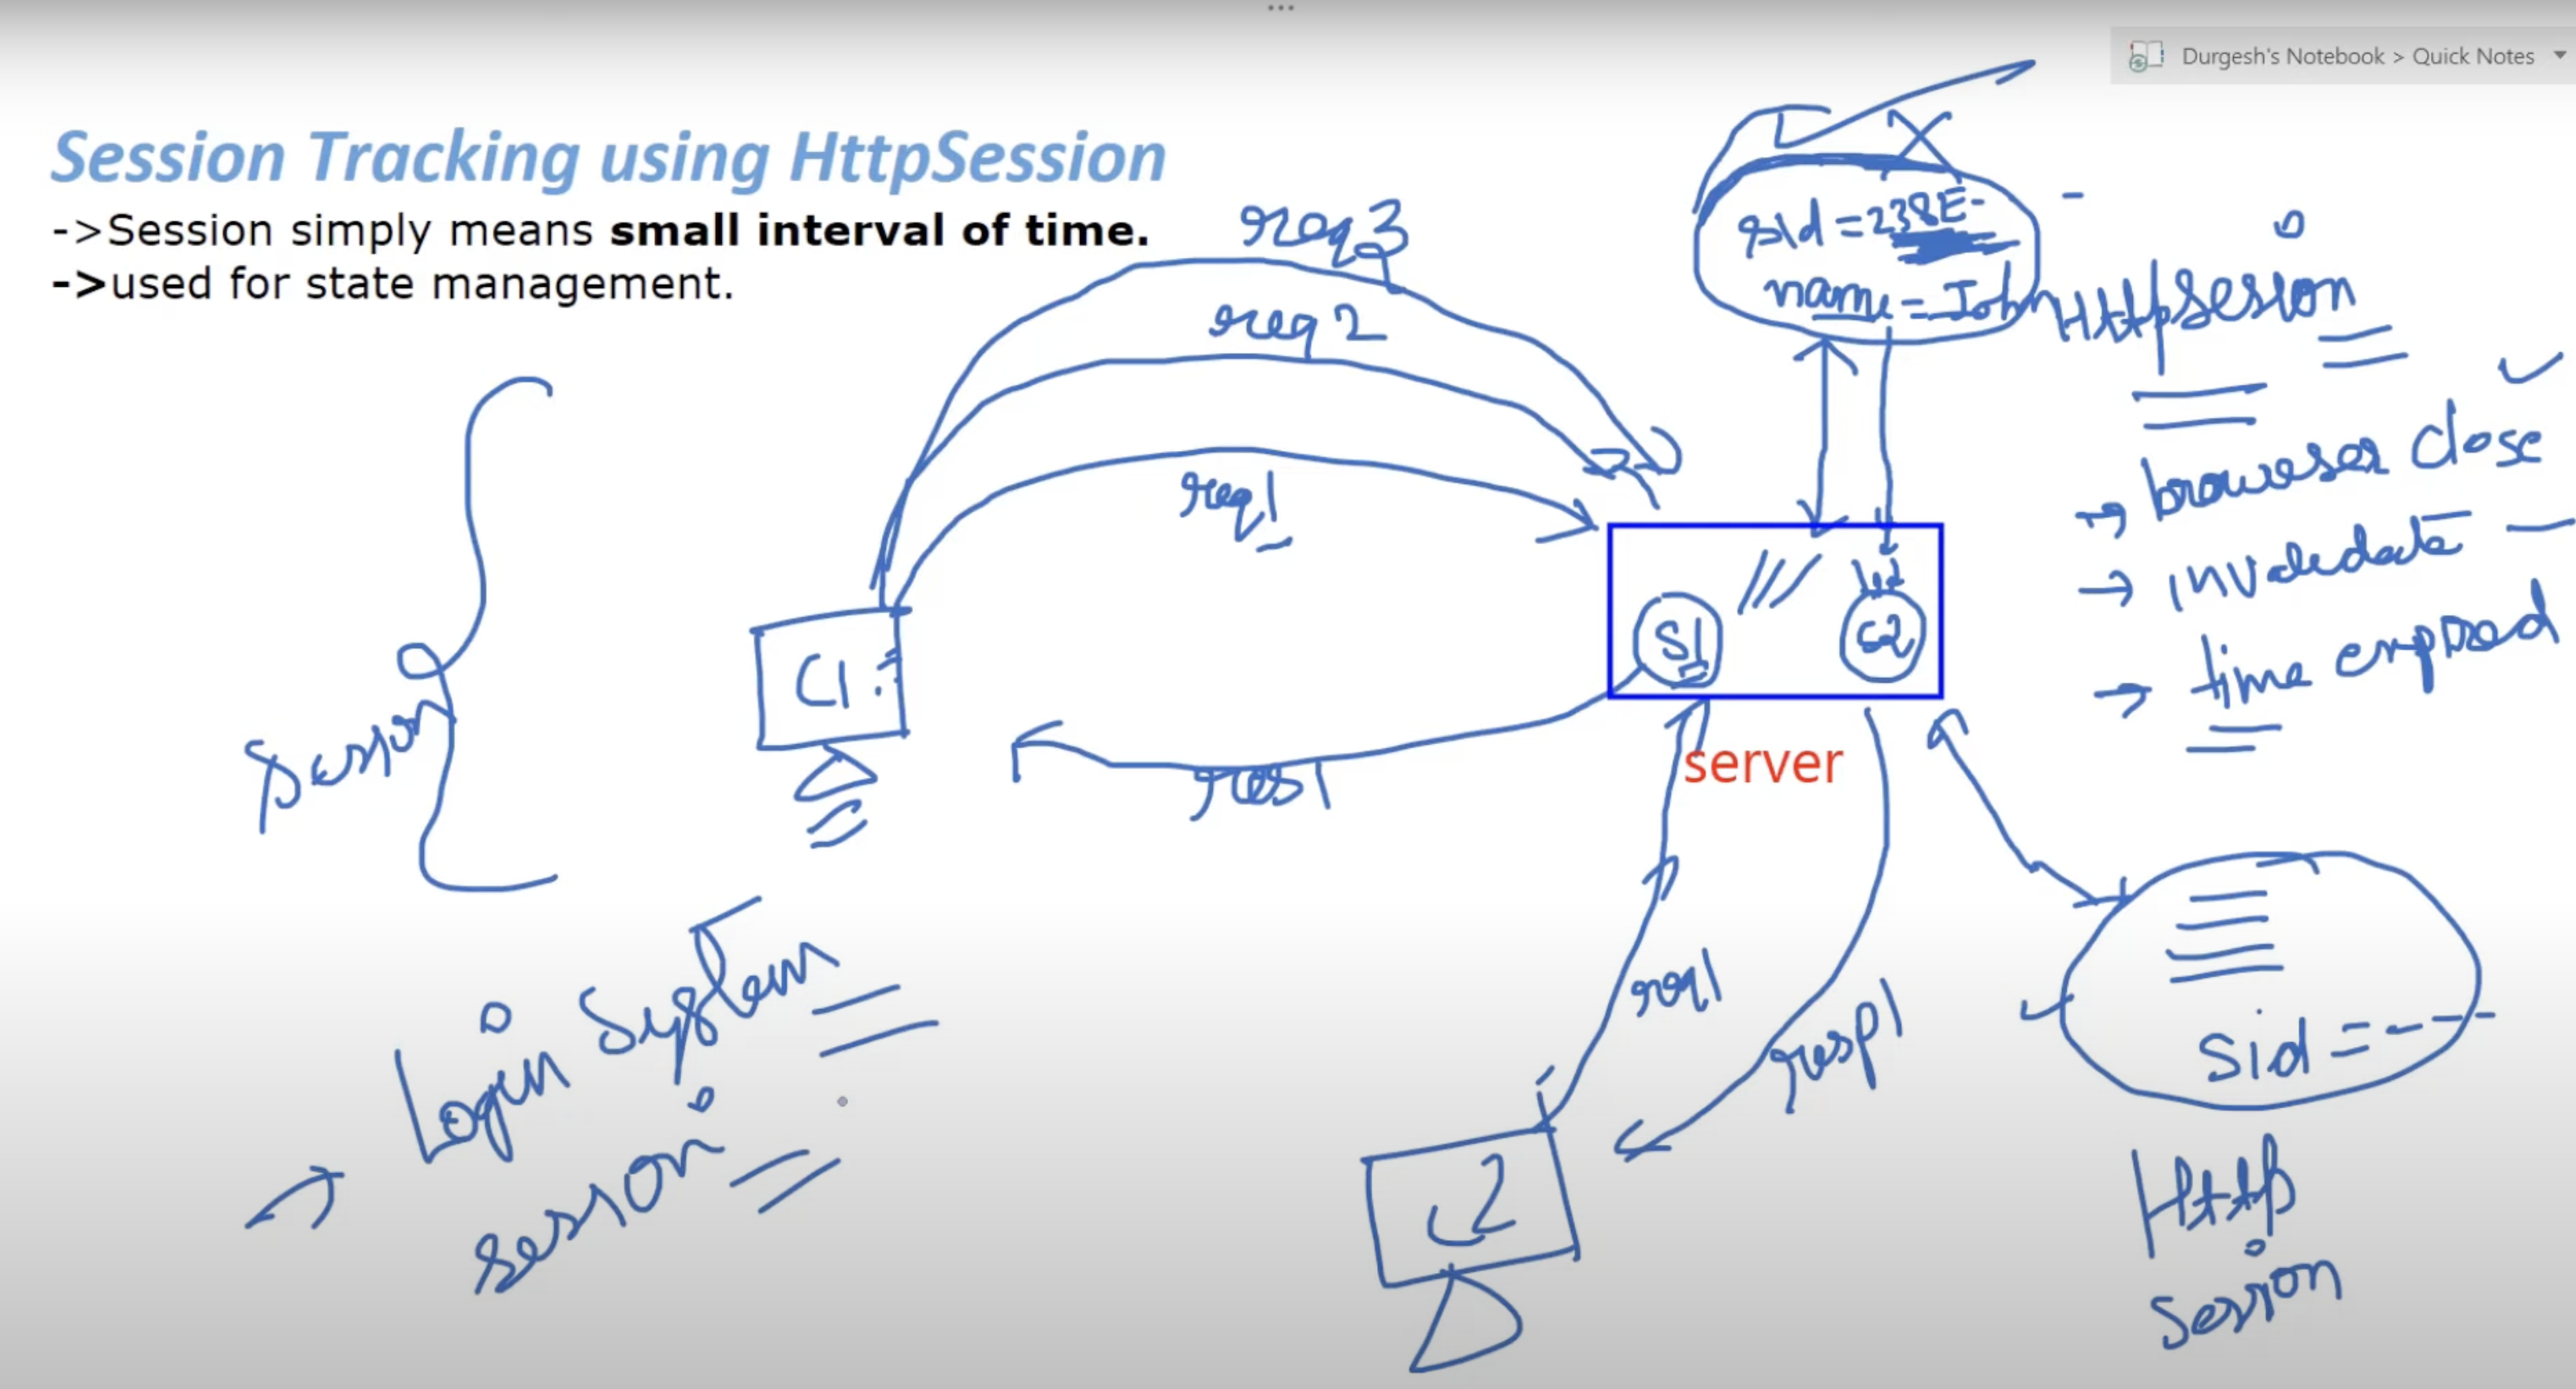 Durgesh's Notebook > Quick Notes
Session Tracking using HttpSession
->Session simply means small interval of time.
->used for state management.
req3
req 2
req1
sid = 238E-
name = John
HttpSession
browser close
invalidate
time expired
C1
S1
S2
server
res1
Session
Login System
session
req1
resp1
C2
sid = ----
Http
Session